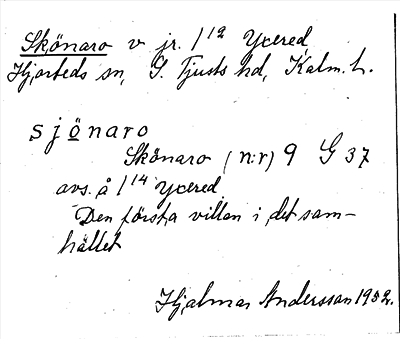 Skönaro v. jr. 1/12 Yxered
Hjorteds sn, S. Tjusts hd, Kalm. l.
sjönaro
Skönaro (n:r) 9 G 37
avs. å 1/14 Yxered
Den första villan i det sam-
hället
Hjalmar Andersson 1932.